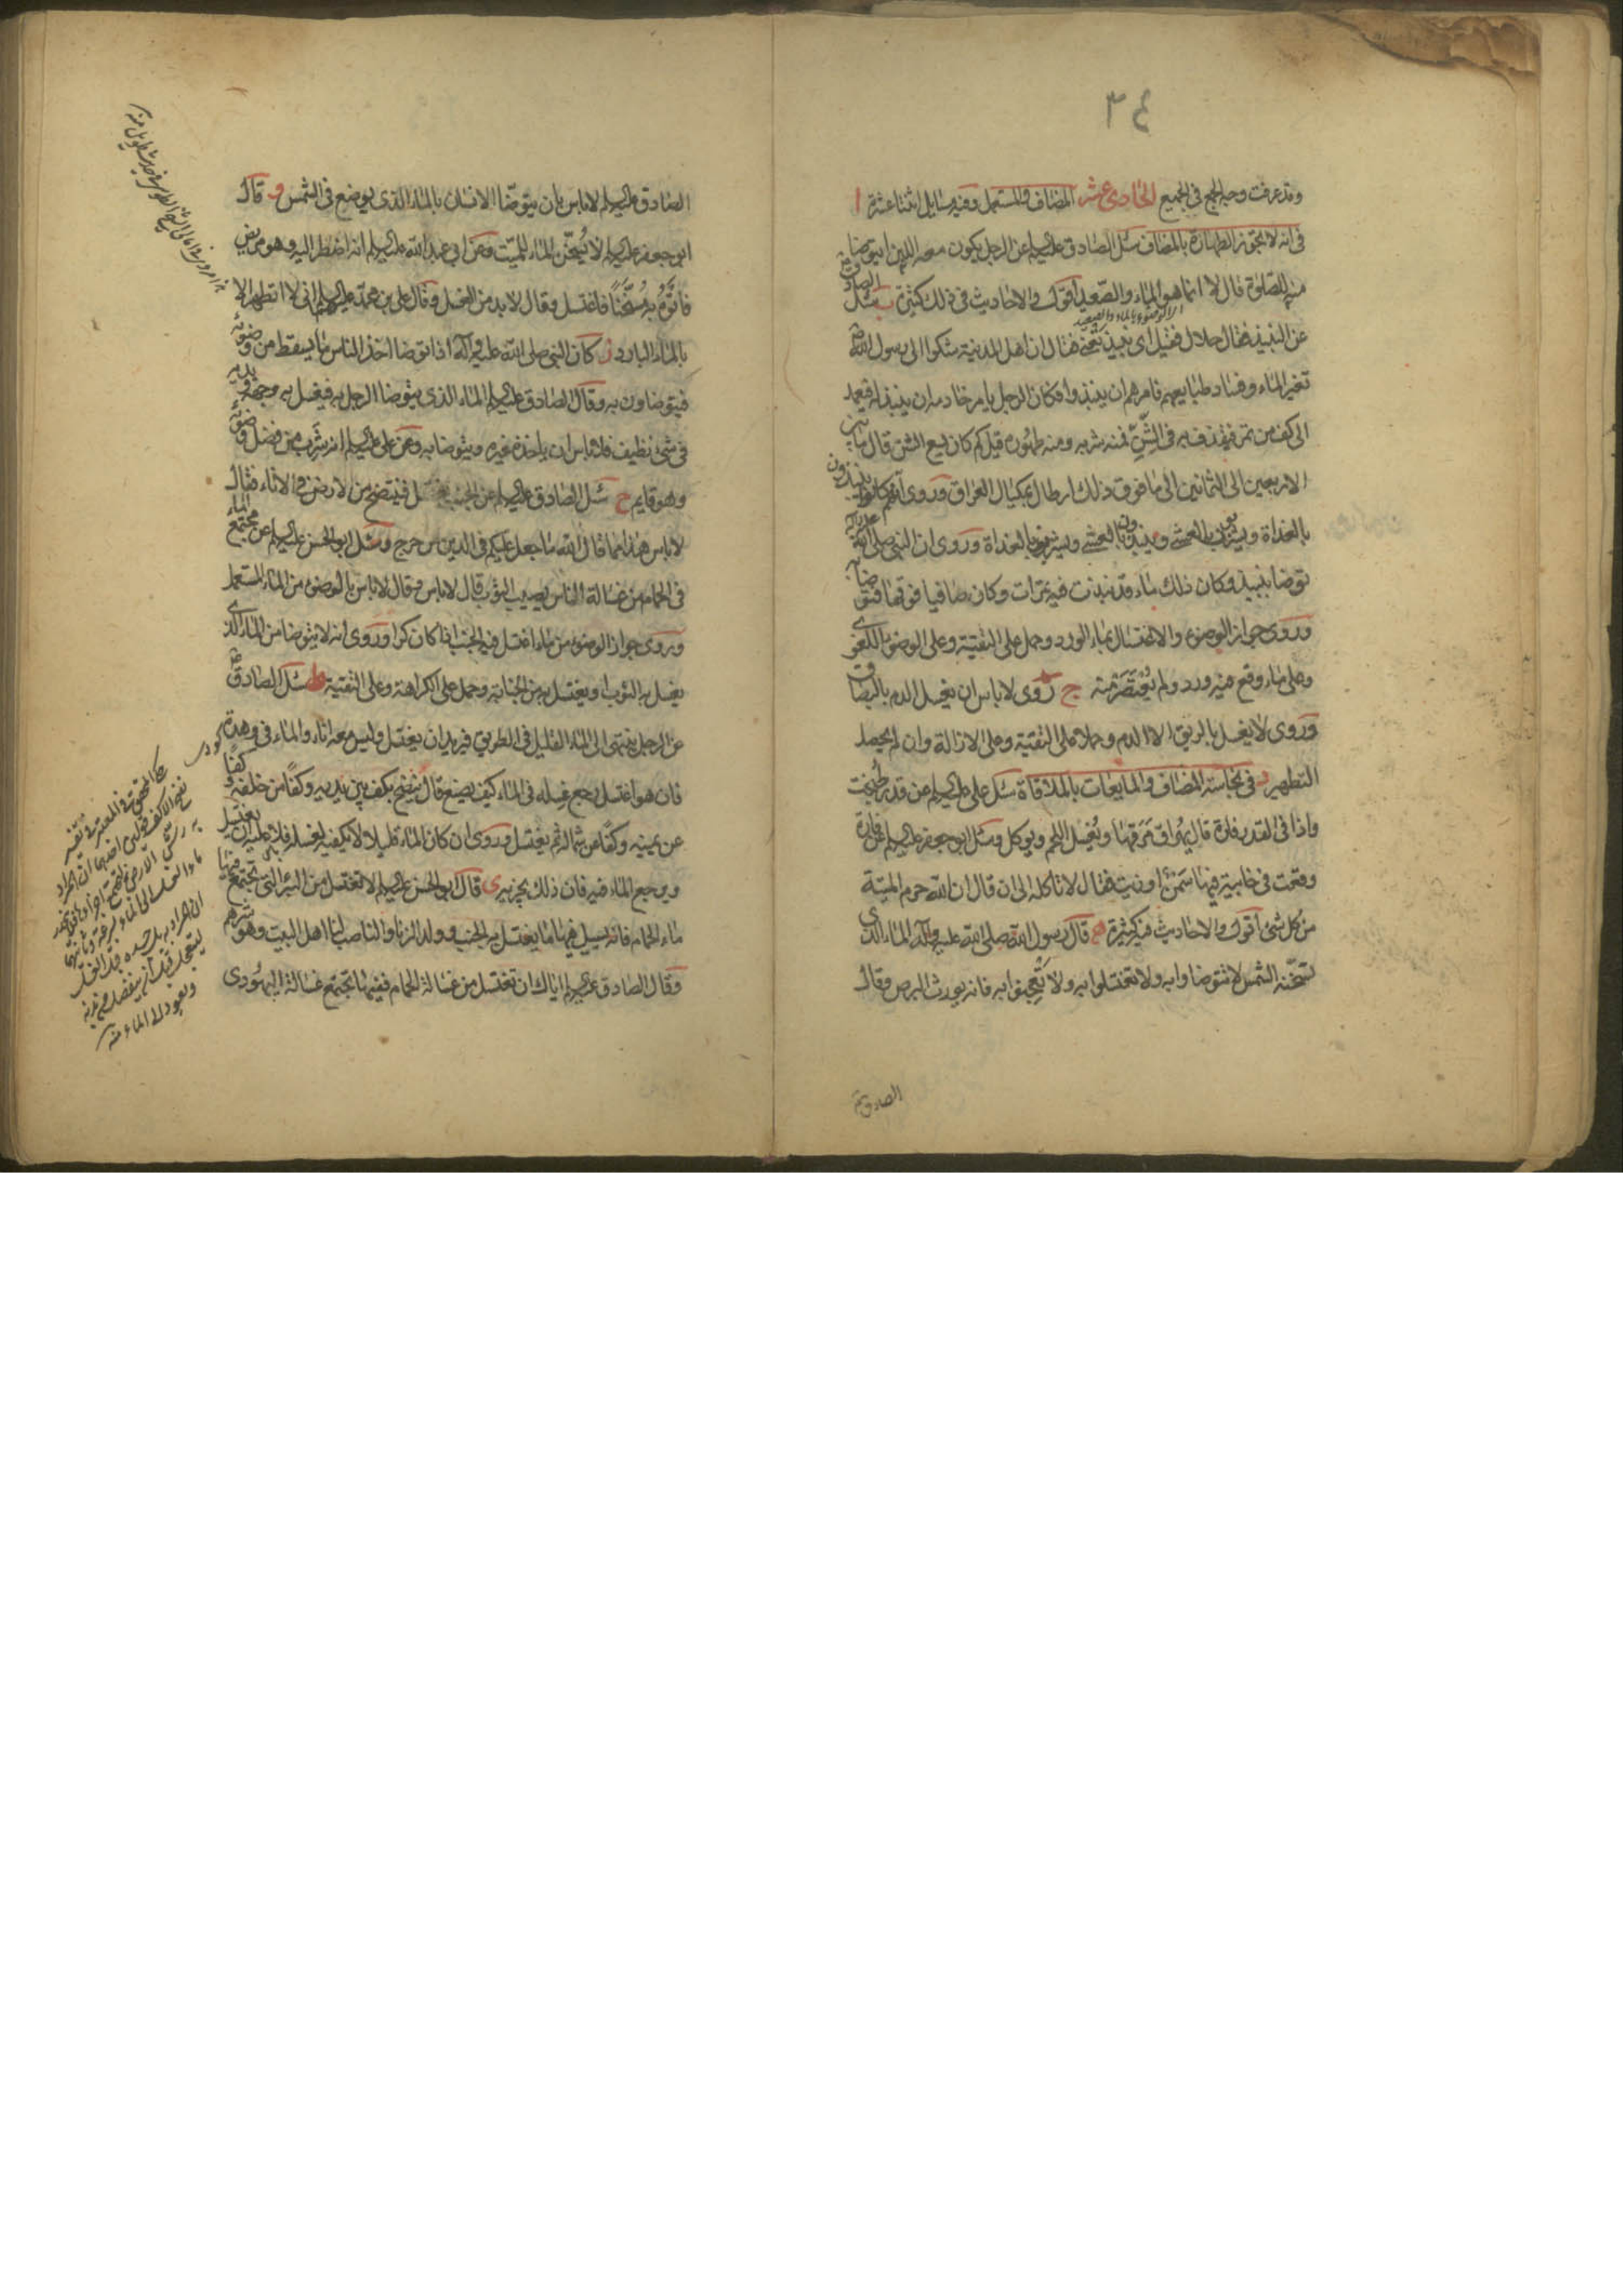 ٣٤
وقد عرفت وجه الجمع فى الجميع الحادى عشر المضاف والمستعمل وفيه مسايل اثنتا عشرة ا
فى انه لا تجوز الطهارة بالمضاف سئل الصادق عليه السلم عن الرجل يكون معه اللبن ايتوضا
منه للصلوة قال لا انما هو الماء والصعيد اقول والاحاديث فى ذلك كثيرة ب سئل الصادق
عن النبيذ فقال حلال فقيل اى نبيذ تعنى فقال ان اهل المدينة شكوا الى رسول الله
تغير الماء وفساد طبايعهم فامرهم ان ينبذوا فكان الرجل يامر خادمه ان ينبذ له فيعمد
الى كف من تمر فيقذف به فى الشن فمنه شربه ومنه طهوره قيل كم كان يسع الشن قال ما بين
الاربعين الى الثمانين الى ما فوق ذلك ارطال بمكيال العراق وروى انهم كانوا ينبذون
بالغداة ويشربون بالعشى وينبذون بالعشى ويشربون بالغداة وروى ان النبى صلى الله عليه وآله
توضا بنبيذ وكان ذلك ماء قد نبذت فيه تمرات وكان صافيا فوقها فتوضا به
وروى جواز الوضوء والاغتسال بماء الورد وحمل على التقية وعلى الوضو اللغوى
وعلى ماء وقع فيه ورد ولم يعتصر منه ج روى لا باس ان يغسل الدم بالبصاق
وروى لا يغسل بالريق الا الدم وحملا على التقية وعلى الازالة وان لم يحصل
التطهير د فى نجاسة المضاف والمايعات بالملاقاة سئل على عليه السلم عن قدر طبخت
واذا فى القدر فارة قال يهراق مرقها ويغسل اللحم ويوكل وسئل ابو جعفر عليه السلم عن فارة
وقعت فى خابية فيها سمن او زيت فقال لا تاكله الى ان قال ان الله حرم الميتة
من كل شئ اقول والاحاديث فيه كثيرة ه قال رسول الله صلى الله عليه وآله الماء الذى
تسخنه الشمس لا تتوضاوا به ولا تغتسلوا به ولا تعجنوا به فانه يورث البرص وقال
الصادق
الصادق عليه السلم لا باس بان يتوضا الانسان بالماء الذى يوضع فى الشمس و قال
ابو جعفر عليه السلم لا يسخن الماء للميت وعن ابى عبد الله عليه السلم انه اضطر اليه وهو مريض
فاتوه به مسخنا فاغتسل وقال لا بد من الغسل وقال على بن محمد عليهما السلم انى لا اتطهر الا
بالماء البارد ز كان النبى صلى الله عليه وآله اذا توضا اخذ الناس ما يسقط من وضوئه
فيتوضاون به وقال الصادق عليه السلم الماء الذى يتوضا الرجل به فيغسل به وجهه ويديه
فى شئ نظيف فلا باس ان ياخذه غيره ويتوضا به وعن على عليه السلم انه شرب من فضل وضوئه
وهو قايم ح سئل الصادق عليه السلم عن الجنب يغتسل فينتضح من الارض فى الاناء فقال
لا باس هذا مما قال الله ما جعل عليكم فى الدين من حرج وسئل ابو الحسن عليه السلم عن مجتمع الماء
فى الحمام من غسالة الناس يصيب الثوب قال لا باس وقال لا باس بالوضوء من الماء المستعمل
وروى جواز الوضوء من ماء اغتسل فيه الجنب اذا كان كرا وروى انه لا يتوضا من الماء الذى
يغسل به الثوب او يغتسل به من الجنابة وحمل على الكراهة وعلى التقية ط سئل الصادق
عن الرجل ينتهى الى الماء القليل فى الطريق فيريد ان يغتسل وليس معه اناء والماء فى وهدة
فان هو اغتسل رجع غسله فى الماء كيف يصنع قال ينضح بكف بين يديه وكفا من خلفه وكفا
عن يمينه وكفا عن شماله ثم يغتسل وروى ان كان الماء قليلا لا يكفيه لغسله فلا عليه ان يغتسل
ويرجع الماء فيه فان ذلك يجزيه ى قال ابو الحسن عليه السلم لا تغتسل من البئر التى تجتمع فيها
ماء الحمام فانه يسيل فيها ما يغتسل به الجنب وولد الزنا والناصب لنا اهل البيت وهو شرهم
وقال الصادق عليه السلم اياك ان تغتسل من غسالة الحمام ففيها تجتمع غسالة اليهودى